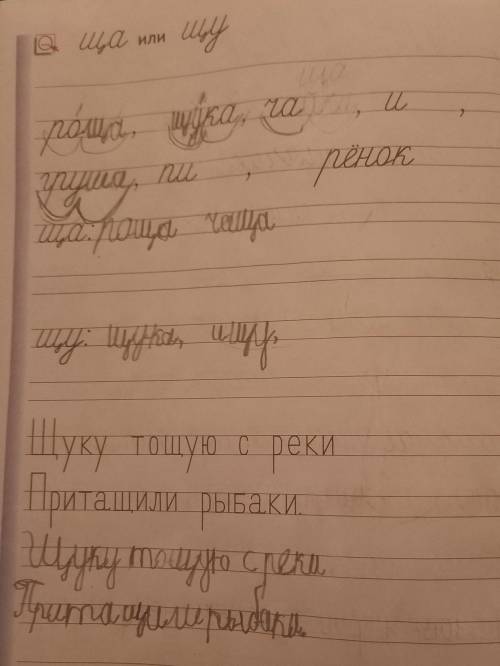 ща или щу
ро́ща, щу́ка, ча , и ,
груша, пи , рёнок
ща: роща чаща
щу: щука, ищу,
Щуку тощую с реки
Притащили рыбаки.
Щуку тощую с реки
Притащили рыбаки.